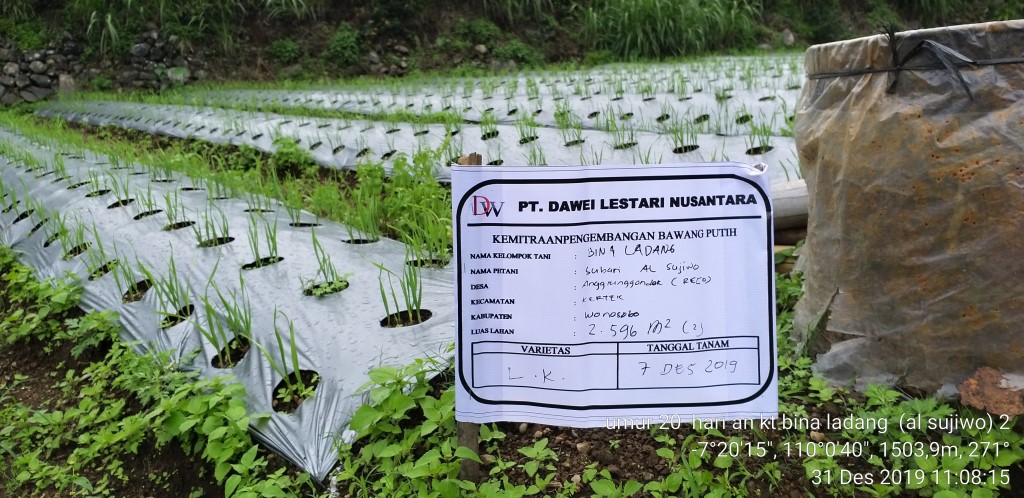 DW PT. DAWEI LESTARI NUSANTARA
KEMITRAANPENGEMBANGAN BAWANG PUTIH
NAMA KELOMPOK TANI : BINA LADANG
NAMA PETANI : Subari AL Sujiwo
DESA : Anggrunggondok (RECO)
KECAMATAN : KERTEK
KABUPATEN : Wonosobo
LUAS LAHAN : 2.596 M2 (2)
VARIETAS TANGGAL TANAM
L.K. 7 DES 2019
umur 20 hari an kt.bina ladang (al sujiwo) 2
-7°20'15", 110°0'40", 1503,9m, 271°
31 Des 2019 11:08:15